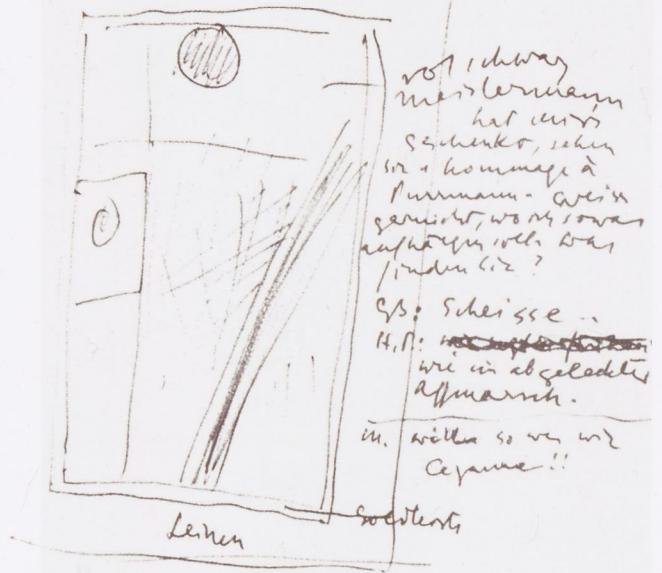 rot schwarz
meistermann
hat mirs
geschenkt, sehen
sie " hommage à
Purrmann. weiss
garnicht, wo ich sowas
aufhängen soll. was
finden sie?
GB: Scheisse ..
H.P.:
wie ein abgeleckter
Affenarsch.
m. wollte so was wie
Cezanne!!
Leinen